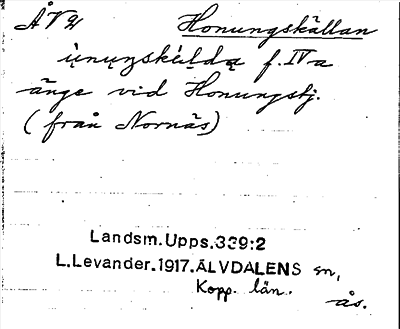 ÅV Honungskällan
f. IV a
änge vid Honungstj.
(från Nornäs)
Landsm.Upps.339:2
L.Levander.1917.ÄLVDALENS sn,
Kopp. län.
ås.